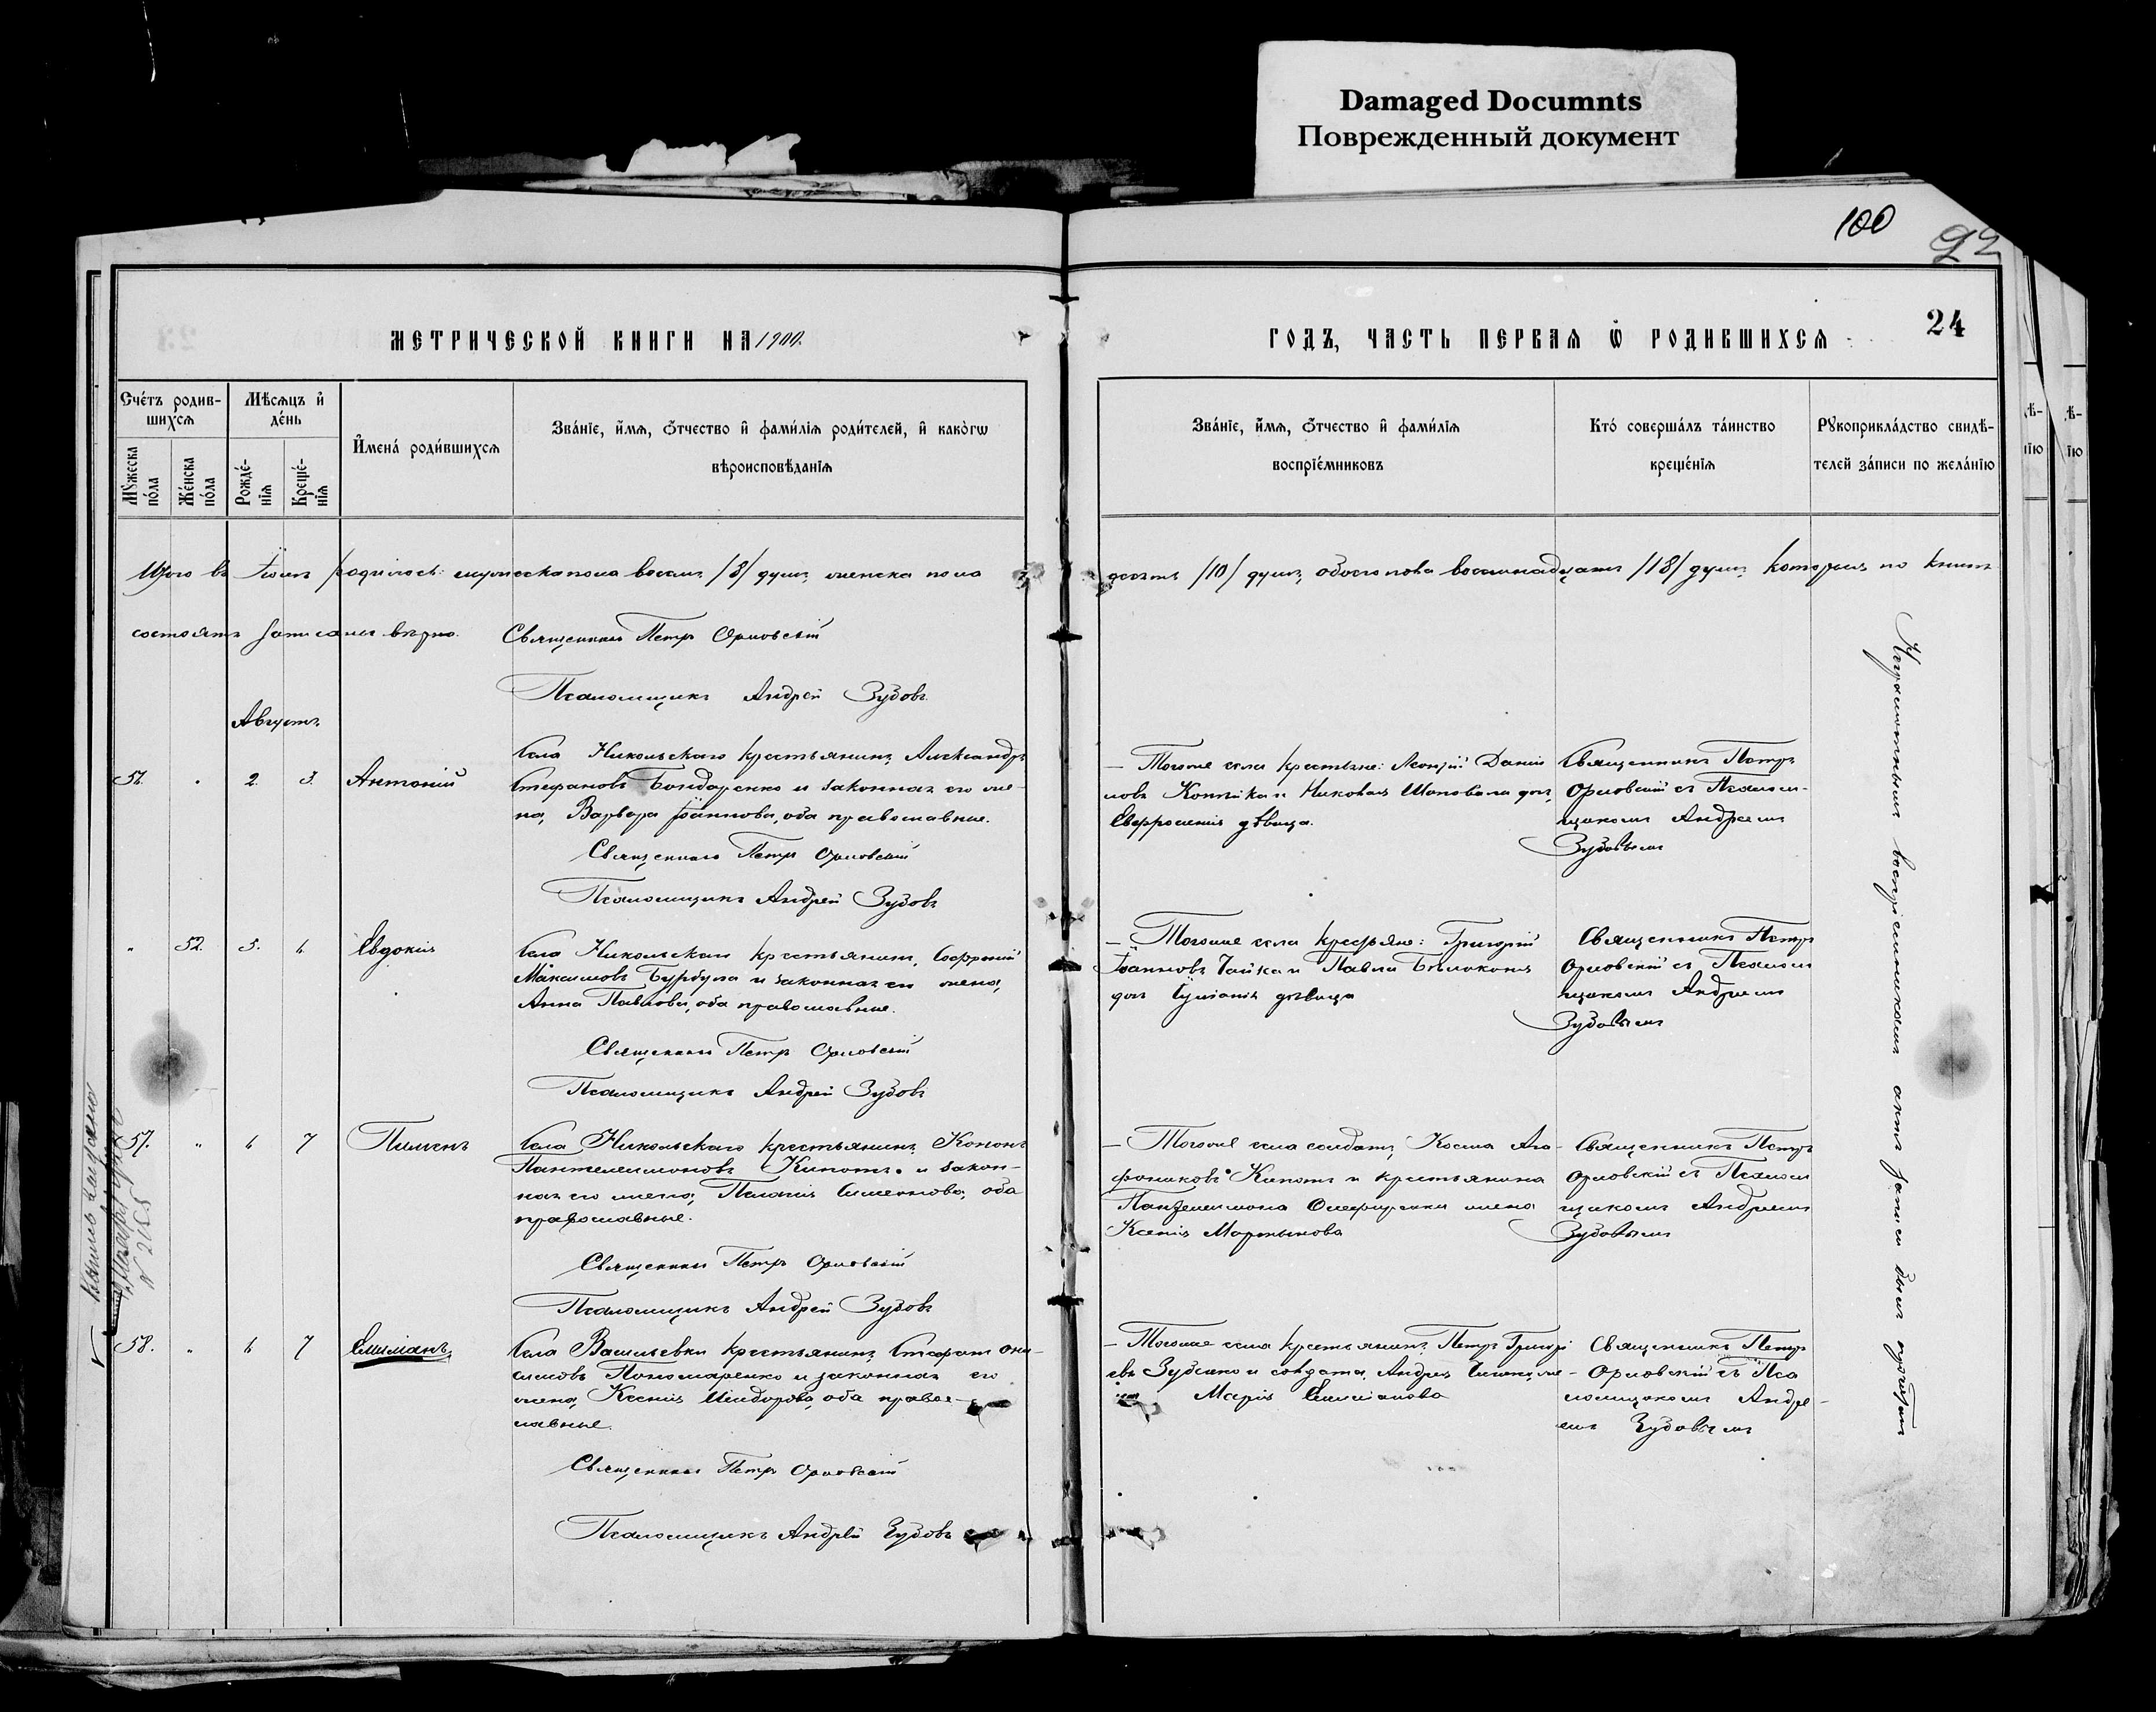 Damaged Documnts
Поврежденный документ
100
92
24
МЕТРИЧЕСКОЙ КНИГИ НА 1900.
ГОДЪ, ЧАСТЬ ПЕРВАѦ Ѿ РОДИВШИХСѦ
Счéтъ родив-
шихсѧ
Мѣсѧцъ и҆
дéнь
Мꙋжеска
пóла
Жéнска
пóла
Рождé-
нїѧ
Крещé-
нїѧ
И҆менà роди́вшихсѧ
Звáнїе, и҆́мѧ, ѻ҆́тчество и҆ фами́лїѧ роди́телей, и҆ какóгѡ
вѣроисповѣ́данїѧ
Звáнїе, и҆́мѧ, ѻ҆́тчество и҆ фами́лїѧ
воспрїéмниковъ
Ктó совершáлъ тáинство
крещéнїѧ
Рꙋкоприклáдство свидѣ́-
телей зáписи по желáнїю
Итого въ Іюлѣ родилось: мужеска пола восемь /8/ душъ, женска пола
десять /10/ душъ, обоего пола восемнадцать /18/ душъ, которые по книгѣ
состоятъ записаны вѣрно. Священникъ Петръ Орловскій
Псаломщикъ Андрей Зубовъ.
Августъ
2. 3. Антоній
Села Никольскаго крестьянинъ, Александръ
Стефановъ Бондаренко и законная его же-
на, Варвара Іоаннова, оба православные.
Священникъ Петръ Орловскій
Псаломщикъ Андрей Зубовъ
— Тогоже села крестьяне: Леонтій Данiи
ловъ и Николая Шаповала дочь,
Евфросинія дѣвица.
Священникъ Петръ
Орловскій съ Псалом-
щикомъ Андреемъ
Зубовымъ
" 52. 5. 6 Евдокія
Села Никольскаго крестьянинъ, Софроній
Максимовъ Бурбула и законная его жена,
Анна Павлова, оба православные.
Священникъ Петръ Орловскій
Псаломщикъ Андрей Зубовъ
— Тогоже села крестьяне: Григорій
Іоанновъ Чайка и Павла Бѣлоконя
дочь дѣвица
Священникъ Петръ
Орловскій съ Псалом
щикомъ Андреемъ
Зубовымъ
57. " 6 7 Пименъ
Села Никольскаго крестьянинъ, Кононъ
Пантелеимоновъ и закон-
ная его жена, Пелагія Симеонова, оба
православные.
Священникъ Петръ Орловскій
Псаломщикъ Андрей Зубовъ
— Тогоже села солдатъ, Косма Ага-
фониковъ и крестьянина
Пантелеимона жена
Ксенія Мартынова
Священникъ Петръ
Орловскій съ Псалом
щикомъ Андреемъ
Зубовымъ
58. " 6 7 Емиліанъ
Села Васильевки крестьянинъ, Стефанъ Они-
симовъ Пономаренко и законная его
жена, Ксенія Исидорова, оба правос-
лавные.
Священникъ Петръ Орловскій
Псаломщикъ Андрей Зубовъ
— Тогоже села крестьянинъ, Петръ Григорi
евъ Зубенко и солдата, Андрея же-
на Марія Емиліанова
Священникъ Петръ
Орловскій съ Пса
ломщикомъ Андре-
емъ Зубовымъ
N 2155
Неграмотными воспріемниками